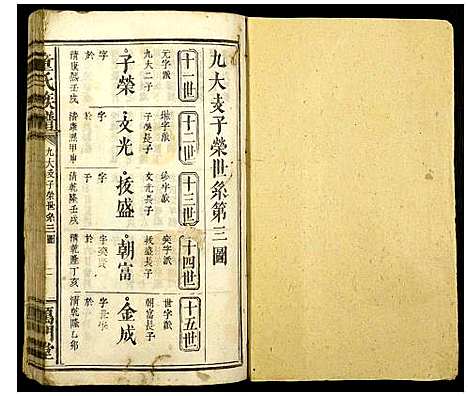 九大支子榮世系第三圖
十一世
元字派
九大二子
子榮
字
於
清康熙壬戌
十二世
子榮長子
文光
字
於
清康熙甲申
十三世
文光長子
拔盛
子
於
清乾隆壬戌
十四世
奕字派
拔盛長子
朝富
字
於
清乾隆丁亥
十五世
世字派
朝富長子
金成
字
於
清乾隆乙卯
氏族譜
九大支子榮世系三圖
一
萬門堂